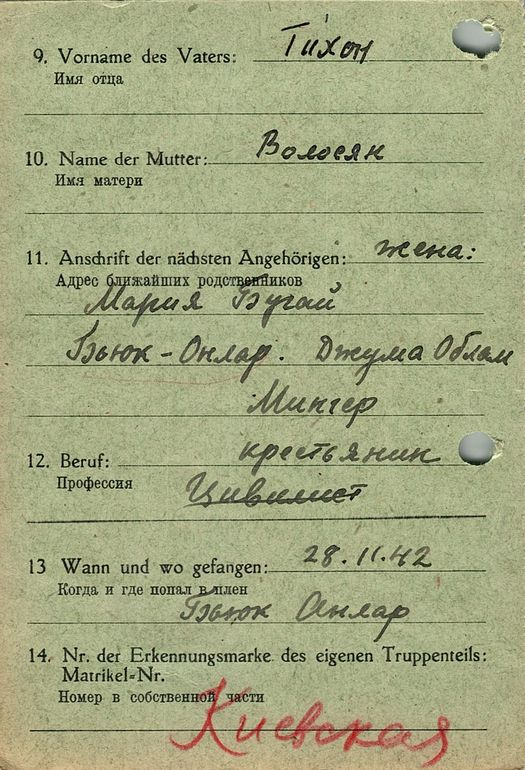 9. Vorname des Vaters: Тихон
Имя отца
10. Name der Mutter: Волосян
Имя матери
11. Anschrift der nächsten Angehörigen: жена:
Адрес ближайших родственников
Мария Бугай
Бьюк-Онлар. Джума Облам
Мингер
12. Beruf: крестьянин
Профессия Цивилист
13 Wann und wo gefangen: 28.11.42
Когда и где попал в плен
Бьюк Анлар
14. Nr. der Erkennungsmarke des eigenen Truppenteils:
Matrikel-Nr.
Номер в собственной части
Киевская